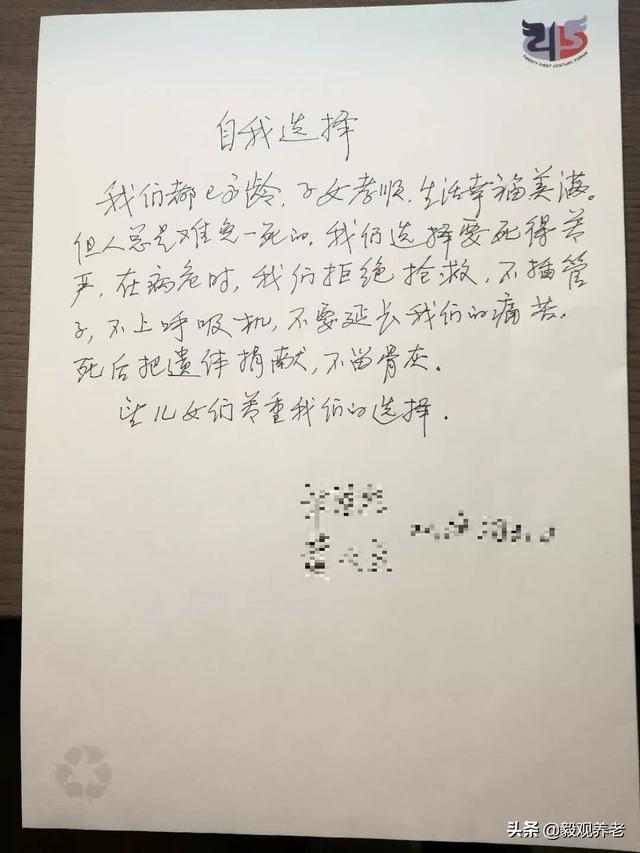 TWENTY FIRST CENTURY FORUM
自我选择
我们都已高龄，子女孝顺，生活幸福美满。
但人总是难免一死的。我们选择要死得尊
严，在病危时，我们拒绝抢救，不插管
子，不上呼吸机，不要延长我们的痛苦。
死后把遗体捐献，不留骨灰。
望儿女们尊重我们的选择.
头条 @毅观养老